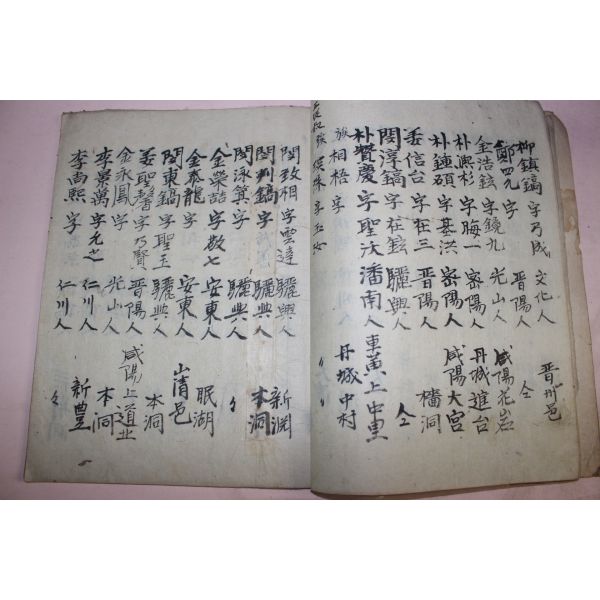 柳鎮鎬 字乃成 文化人 晋州邑
鄭四九 字 晋陽人 仝
金浩鉉 字鏡九 光山人 咸陽花岩
朴興杉 字晦一 密陽人 丹城進台
朴鍾碩 字基洪 密陽人 咸陽大宮
姜信台 字在三 晋陽人 樯洞
閔淳鎬 字在鉉 驪興人 仝
朴贊慶 字聖汏 潘南人 車黄上中里
族相梧 字 丹城中村
字
閔致相 字雲達 驪興人 新渊
閔㓝鎬 字 驪興人 本洞
閔泳箕 字 驪興人 〃
金榮喆 字敬七 安東人 眠湖
金泰龍 字 安東人 山清邑
閔東鎬 字聖玉 驪興人 本洞
姜聖馨 字乃賢 晋陽人 咸陽上道北
金永鳳 字 光山人 本洞
李景萬 字允之 仁川人 新豊
李尚熙 字 仁川人 〃